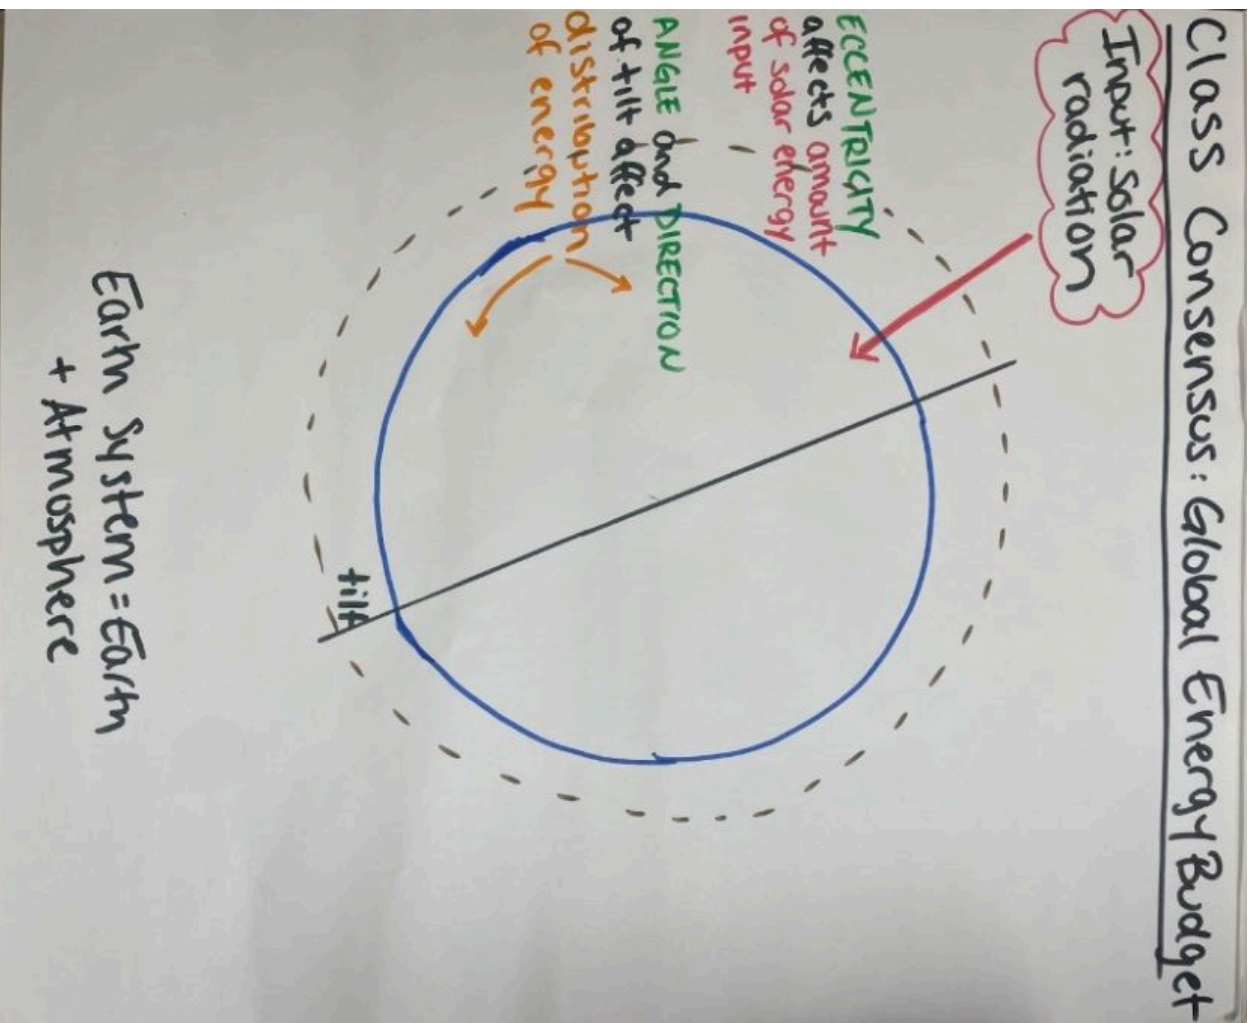 Class Consensus: Global Energy Budget
Input: Solar
radiation
ECCENTRICITY
affects amount
of solar energy
input
ANGLE and DIRECTION
of tilt affect
distribution
of energy
tilt
Earth System = Earth
+ Atmosphere